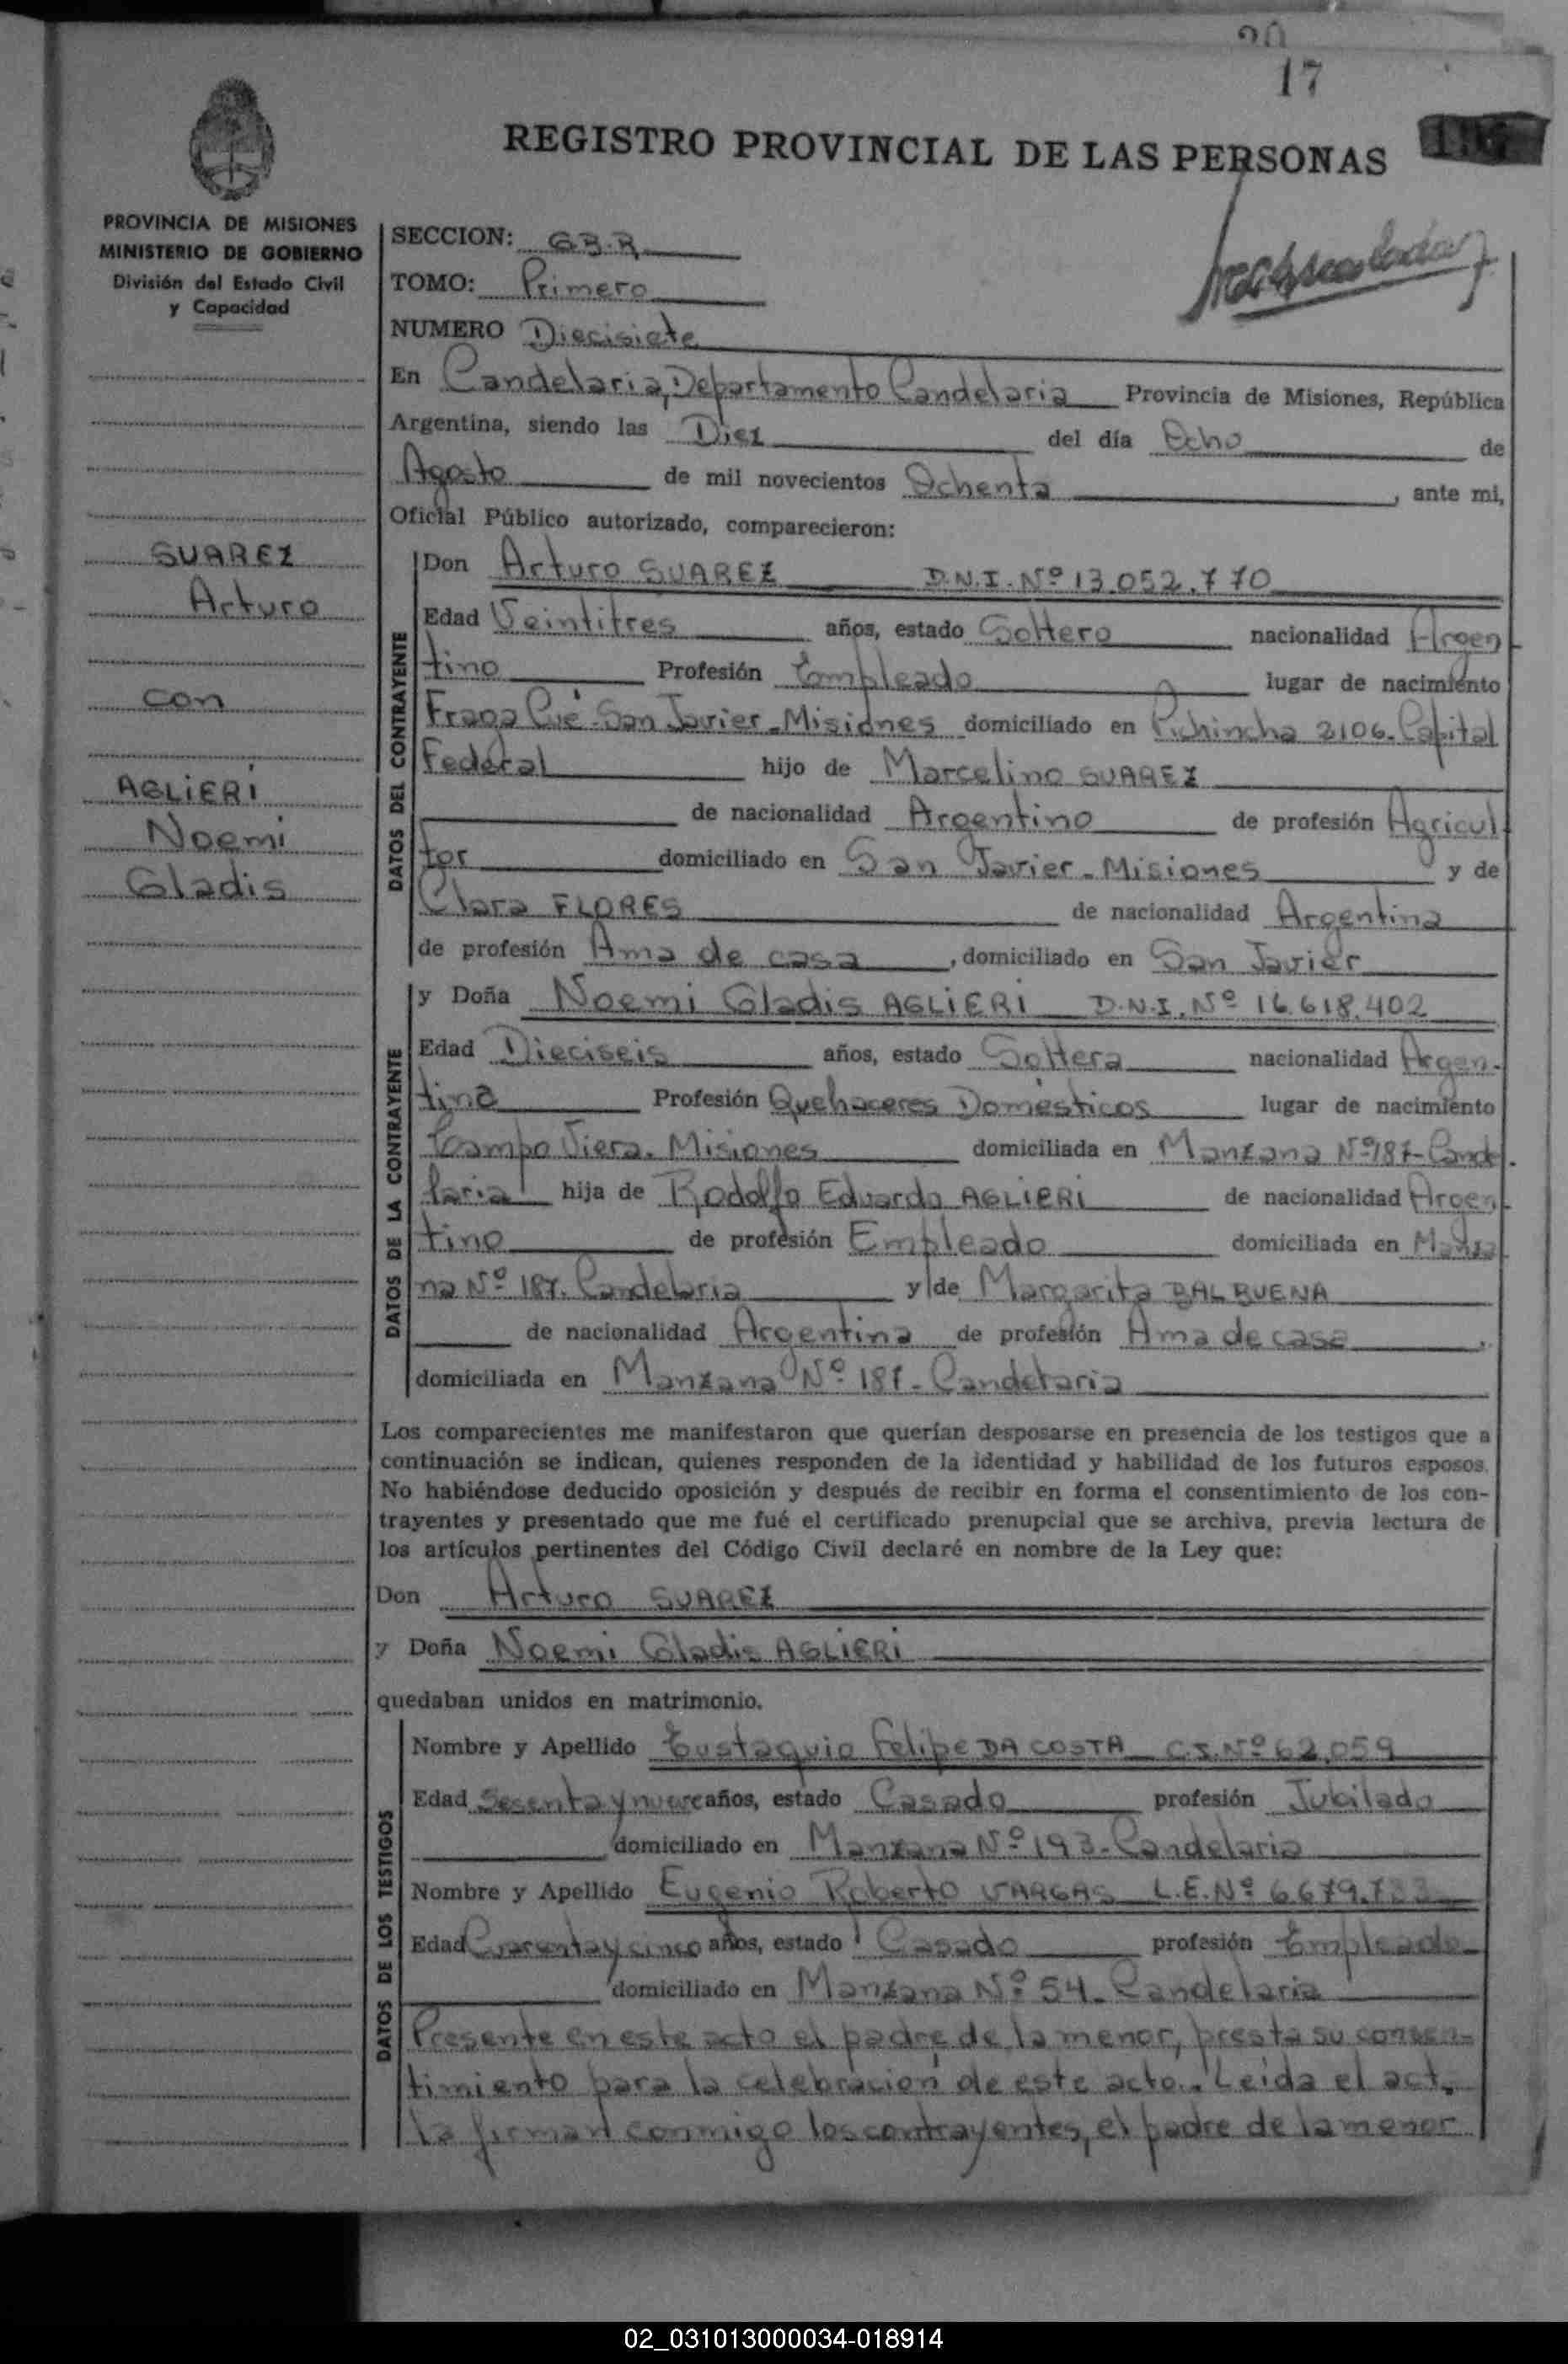 17
REGISTRO PROVINCIAL DE LAS PERSONAS
PROVINCIA DE MISIONES
MINISTERIO DE GOBIERNO
División del Estado Civil
y Capacidad
SUAREZ
Arturo
con
AGLIERI
Noemi
Gladis
SECCION:
TOMO: Primero
NUMERO Diecisiete
En Candelaria, Departamento Candelaria Provincia de Misiones, República
Argentina, siendo las Diez del día Ocho de
Agosto de mil novecientos Ochenta, ante mi,
Oficial Público autorizado, comparecieron:
DATOS DEL CONTRAYENTE
Don Arturo SUAREZ D.N.I. Nº 13.052.770
Edad Veintitres años, estado Soltero nacionalidad Argen-
tino Profesión Empleado lugar de nacimiento
Fraga Cué-San Javier-Misiones domiciliado en Pichincha 2106-Capital
Federal hijo de Marcelino SUAREZ
de nacionalidad Argentino de profesión Agricul-
tor domiciliado en San Javier-Misiones y de
Clara FLORES de nacionalidad Argentina
de profesión Ama de casa, domiciliado en San Javier
DATOS DE LA CONTRAYENTE
y Doña Noemi Gladis AGLIERI D.N.I. Nº 16.618.402
Edad Dieciseis años, estado Soltera nacionalidad Argen-
tina Profesión Quehaceres Domésticos lugar de nacimiento
Campo Viera-Misiones domiciliada en Manzana Nº187-Cande-
laria hija de Rodolfo Eduardo AGLIERI de nacionalidad Argen-
tino de profesión Empleado domiciliada en Manza-
na Nº 187-Candelaria y de Margarita BALBUENA
de nacionalidad Argentina de profesión Ama de casa,
domiciliada en Manzana Nº 187-Candelaria
Los comparecientes me manifestaron que querían desposarse en presencia de los testigos que a
continuación se indican, quienes responden de la identidad y habilidad de los futuros esposos.
No habiéndose deducido oposición y después de recibir en forma el consentimiento de los con-
trayentes y presentado que me fué el certificado prenupcial que se archiva, previa lectura de
los artículos pertinentes del Código Civil declaré en nombre de la Ley que:
Don Arturo SUAREZ
y Doña Noemi Gladis AGLIERI
quedaban unidos en matrimonio.
DATOS DE LOS TESTIGOS
Nombre y Apellido Eustaquio Felipe DA COSTA C.I. Nº 62.059
Edad Sesenta y nueve años, estado Casado profesión Jubilado
domiciliado en Manzana Nº 193-Candelaria
Nombre y Apellido Eugenio Roberto VARGAS L.E. Nº
Edad Cuarenta y cinco años, estado Casado profesión Empleado
domiciliado en Manzana Nº 54-Candelaria
Presente en este acto el padre de la menor, presta su consen-
timiento para la celebración de este acto. Leida el acta
la firman conmigo los contrayentes, el padre de la menor
02_031013000034-018914